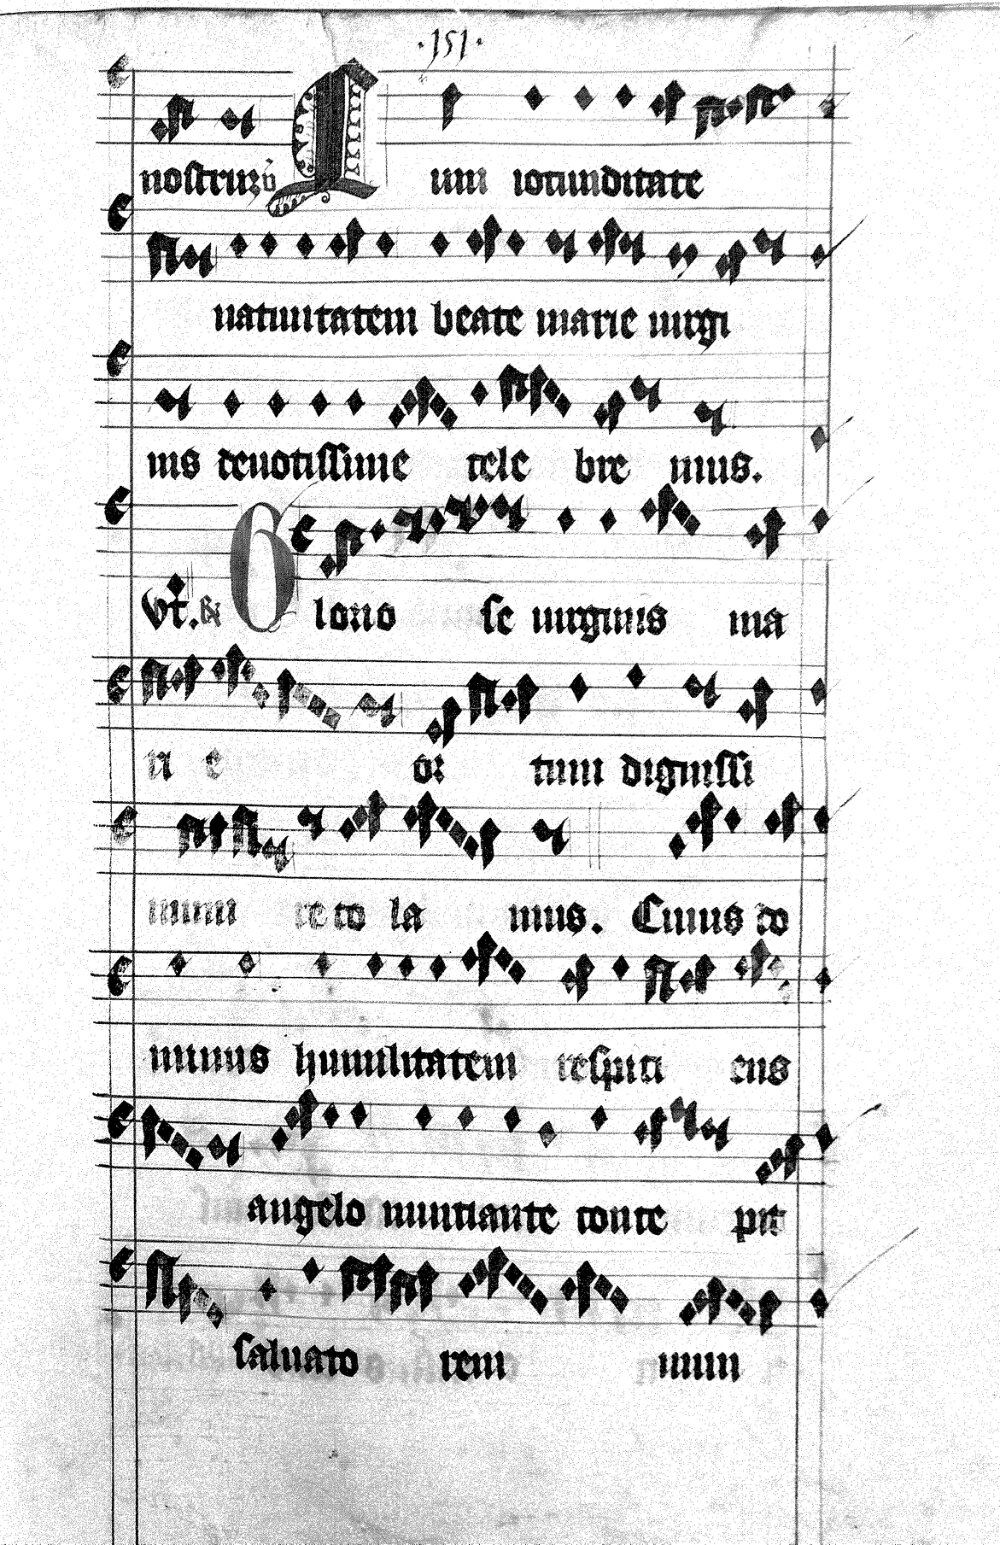 ·151·
nostruʒ ů Cum iocunditate
natiuitatem beate marie uirgi
nis deuotissime cele bre mus.
Vt. & Glorio se uirginis ma
ri e or tum dignissi
mum re co la mus. Cuius do
minus humilitatem respici ens
angelo nuntiante conce pit
saluato rem mun